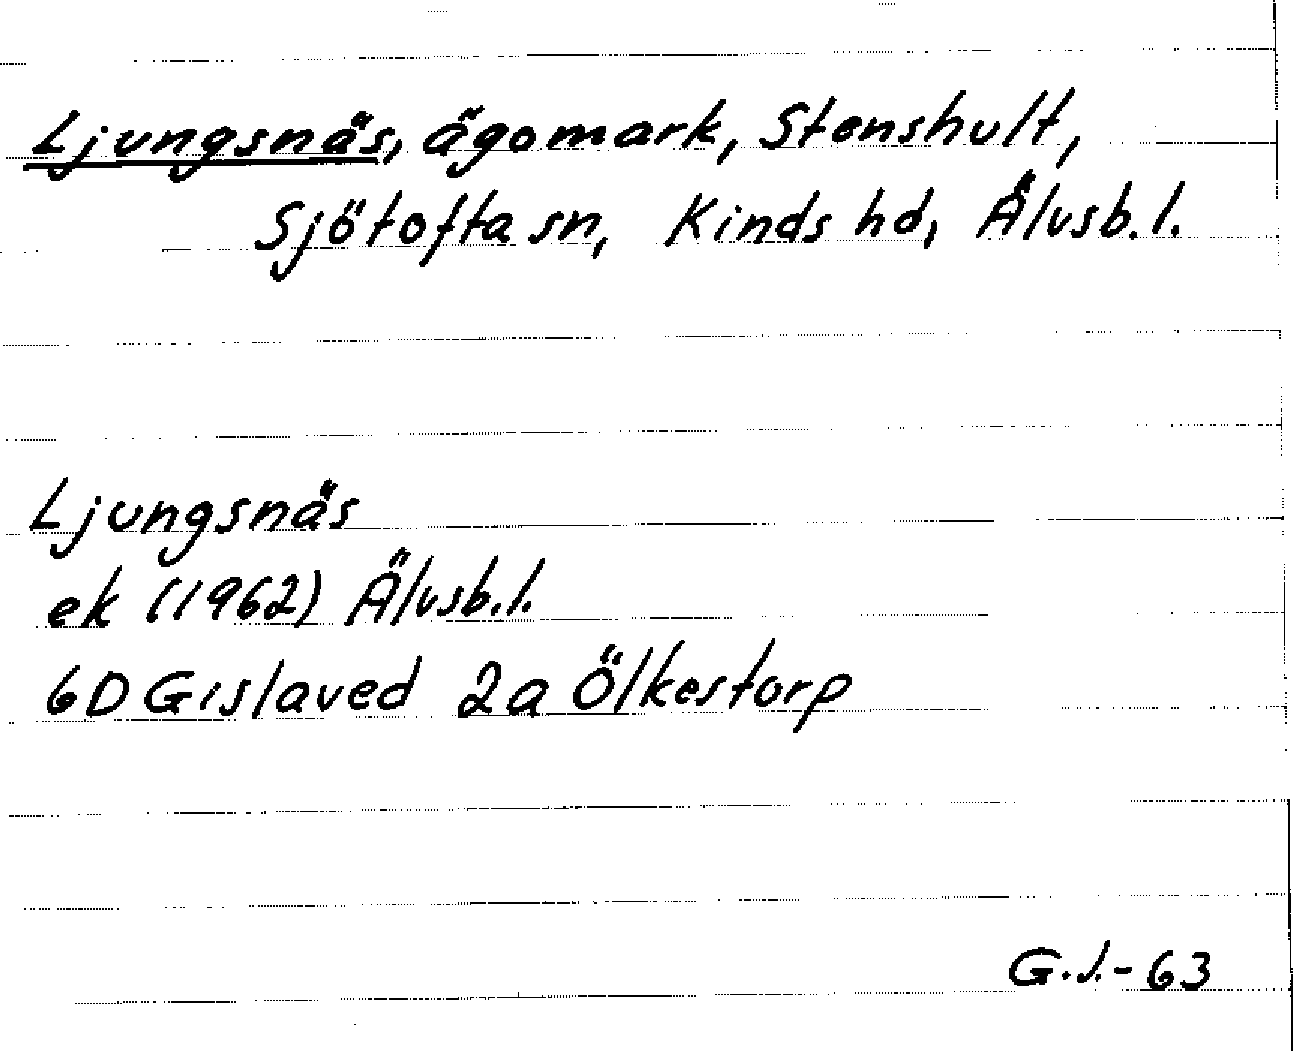 Ljungsnäs, ägomark, Stenshult,
Sjötofta sn, Kinds hd, Älvsb. l.
Ljungsnäs
ek (1962) Älvsb. l.
6D Gislaved 2a Ölkestorp
G.J.-63